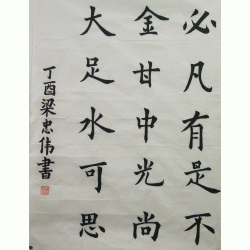 必凡有是不
金甘中光尚
大足水可思
丁酉梁忠伟書